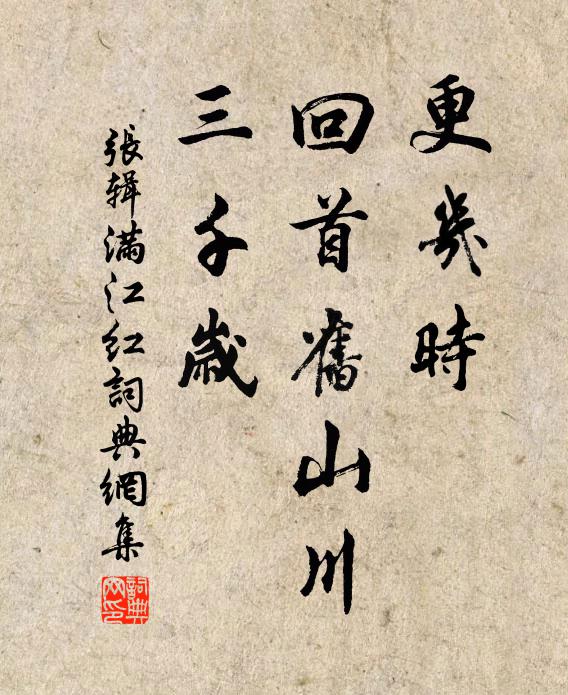 更幾時
回首舊山川
三千歲
張輯滿江紅詞典網集
詞典
网印